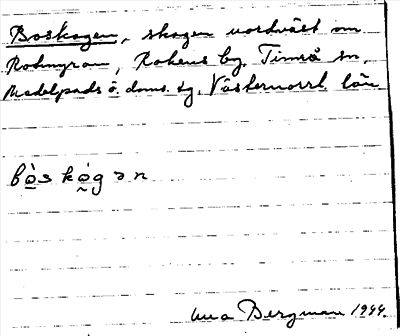 Boskogen, skogen nordväst om
Rokmyran, Rokens by, Timrå sn,
Medelpads ö. doms. tg, Västernorrl. län.
bòskógən
Bergman 1944.